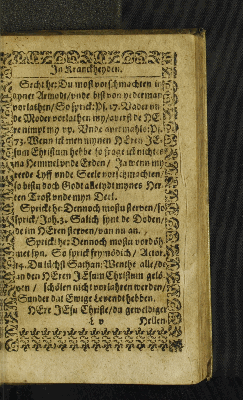 In Kranckheyden.
Secht he: Du most vorschmachten in
dyner Armodt / vnde bist von yederman
vorlathen / So sprick: Ps. 27. Vader vn
de Moder vorlathen my / auerst de HE
re nimpt my vp. Vnde auermahls: Ps.
73. Wenn ick men mynen HEren JE-
sum Christum hebbe so frage ick nichts
na Hemmel vnde Erden / Ja wenn my
reede Lyff vnde Seele vorschmachten /
so bistu doch Godt alletydt mynes Her
ten Trost vnde myn Deel.
Sprickt he: Dennoch mostu steruen / so
sprick / Joh. 3. Salich synt de Doden /
de im HEren steruen / van nu an.
Sprickt he: Dennoch mostu vordöh
met syn. So sprick frymödich / Actor.
Du lüchst Sathan: Wente alle / de
an den HEren JEsum Christum gelö
uen / schölen nicht vorlahren werden /
Sunder dat Ewige Leuendt hebben.
HEre JEsu Christe / du geweldiger
L v
Helleu